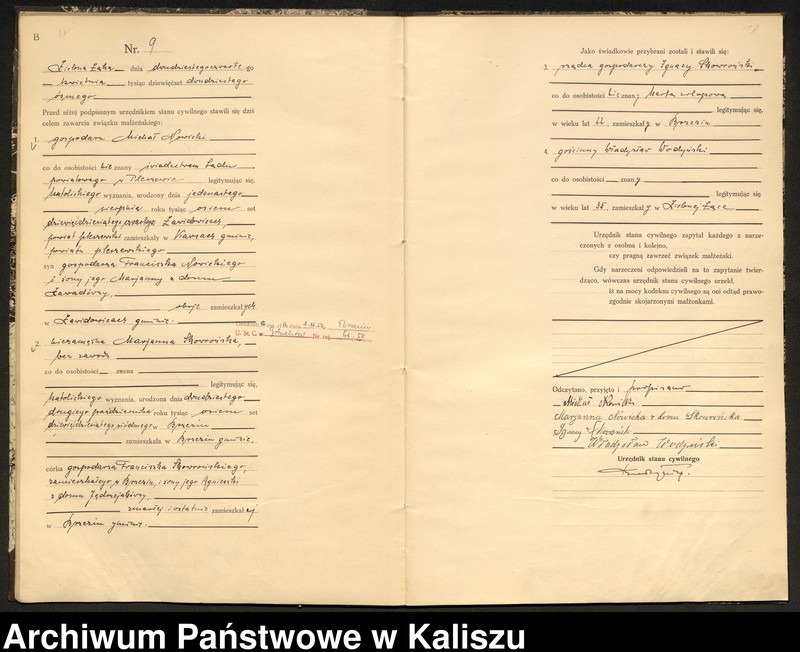 B
Nr. 9
Zielona Łąka dnia dwudziestego czwartego
kwietnia tysiąc dziewięćset dwudziestego
ósmego
Przed niżej podpisanym urzędnikiem stanu cywilnego stawili się dziś
celem zawarcia związku małżeńskiego:
1. gospodarz Michał Nowicki
co do osobistości znany świadectwem
powiatowego w Pleszewie legitymując się,
katolickiego wyznania, urodzony dnia jedenastego
sierpnia roku tysiąc osiem set
dziewięćdziesiątego Zawidowicach,
powiat pleszewski zamieszkały w gminie,
powiatu pleszewskiego
syn gospodarza Franciszka Nowickiego
i żony jego Marjanny z domu
oboje zamieszkałych
w Zawidowicach gminie.
2. niezamężna Marjanna Skowrońska,
bez zawodu
co do osobistości znana
legitymując się,
katolickiego wyznania, urodzona dnia dwudziestego
drugiego października roku tysiąc osiem set
dziewięćdziesiątego siódmego w Brzeziu
zamieszkała w Brzeziu gminie.
córka gospodarza Franciszka Skowrońskiego,
zamieszkałego w Brzeziu, i żony jego Agnieszki
z domu
zmarłej i ostatnio zamieszkałej
w Brzeziu gminie.
Jako świadkowie przybrani zostali i stawili się:
3. rządca gospodarczy Ignacy Skowroński
co do osobistości znany
legitymując się,
w wieku lat zamieszkały w Brzeziu
4. gościnny Władysław Wodyński
co do osobistości znany
legitymując się
w wieku lat 35, zamieszkały w Zielonej Łące
Urzędnik stanu cywilnego zapytał każdego z narze-
czonych z osobna i kolejno,
czy pragną zawrzeć związek małżeński.
Gdy narzeczeni odpowiedzieli na to zapytanie twier-
dząco, wówczas urzędnik stanu cywilnego orzekł,
iż na mocy kodeksu cywilnego są oni odtąd prawo-
zgodnie skojarzonymi małżonkami.
Odczytano, przyjęto i podpisano
Michał Nowicki
Marjanna Nowicka z domu Skowrońska
Ignacy Skowroński
Władysław Wodyński
Urzędnik stanu cywilnego
Archiwum Państwowe w Kaliszu